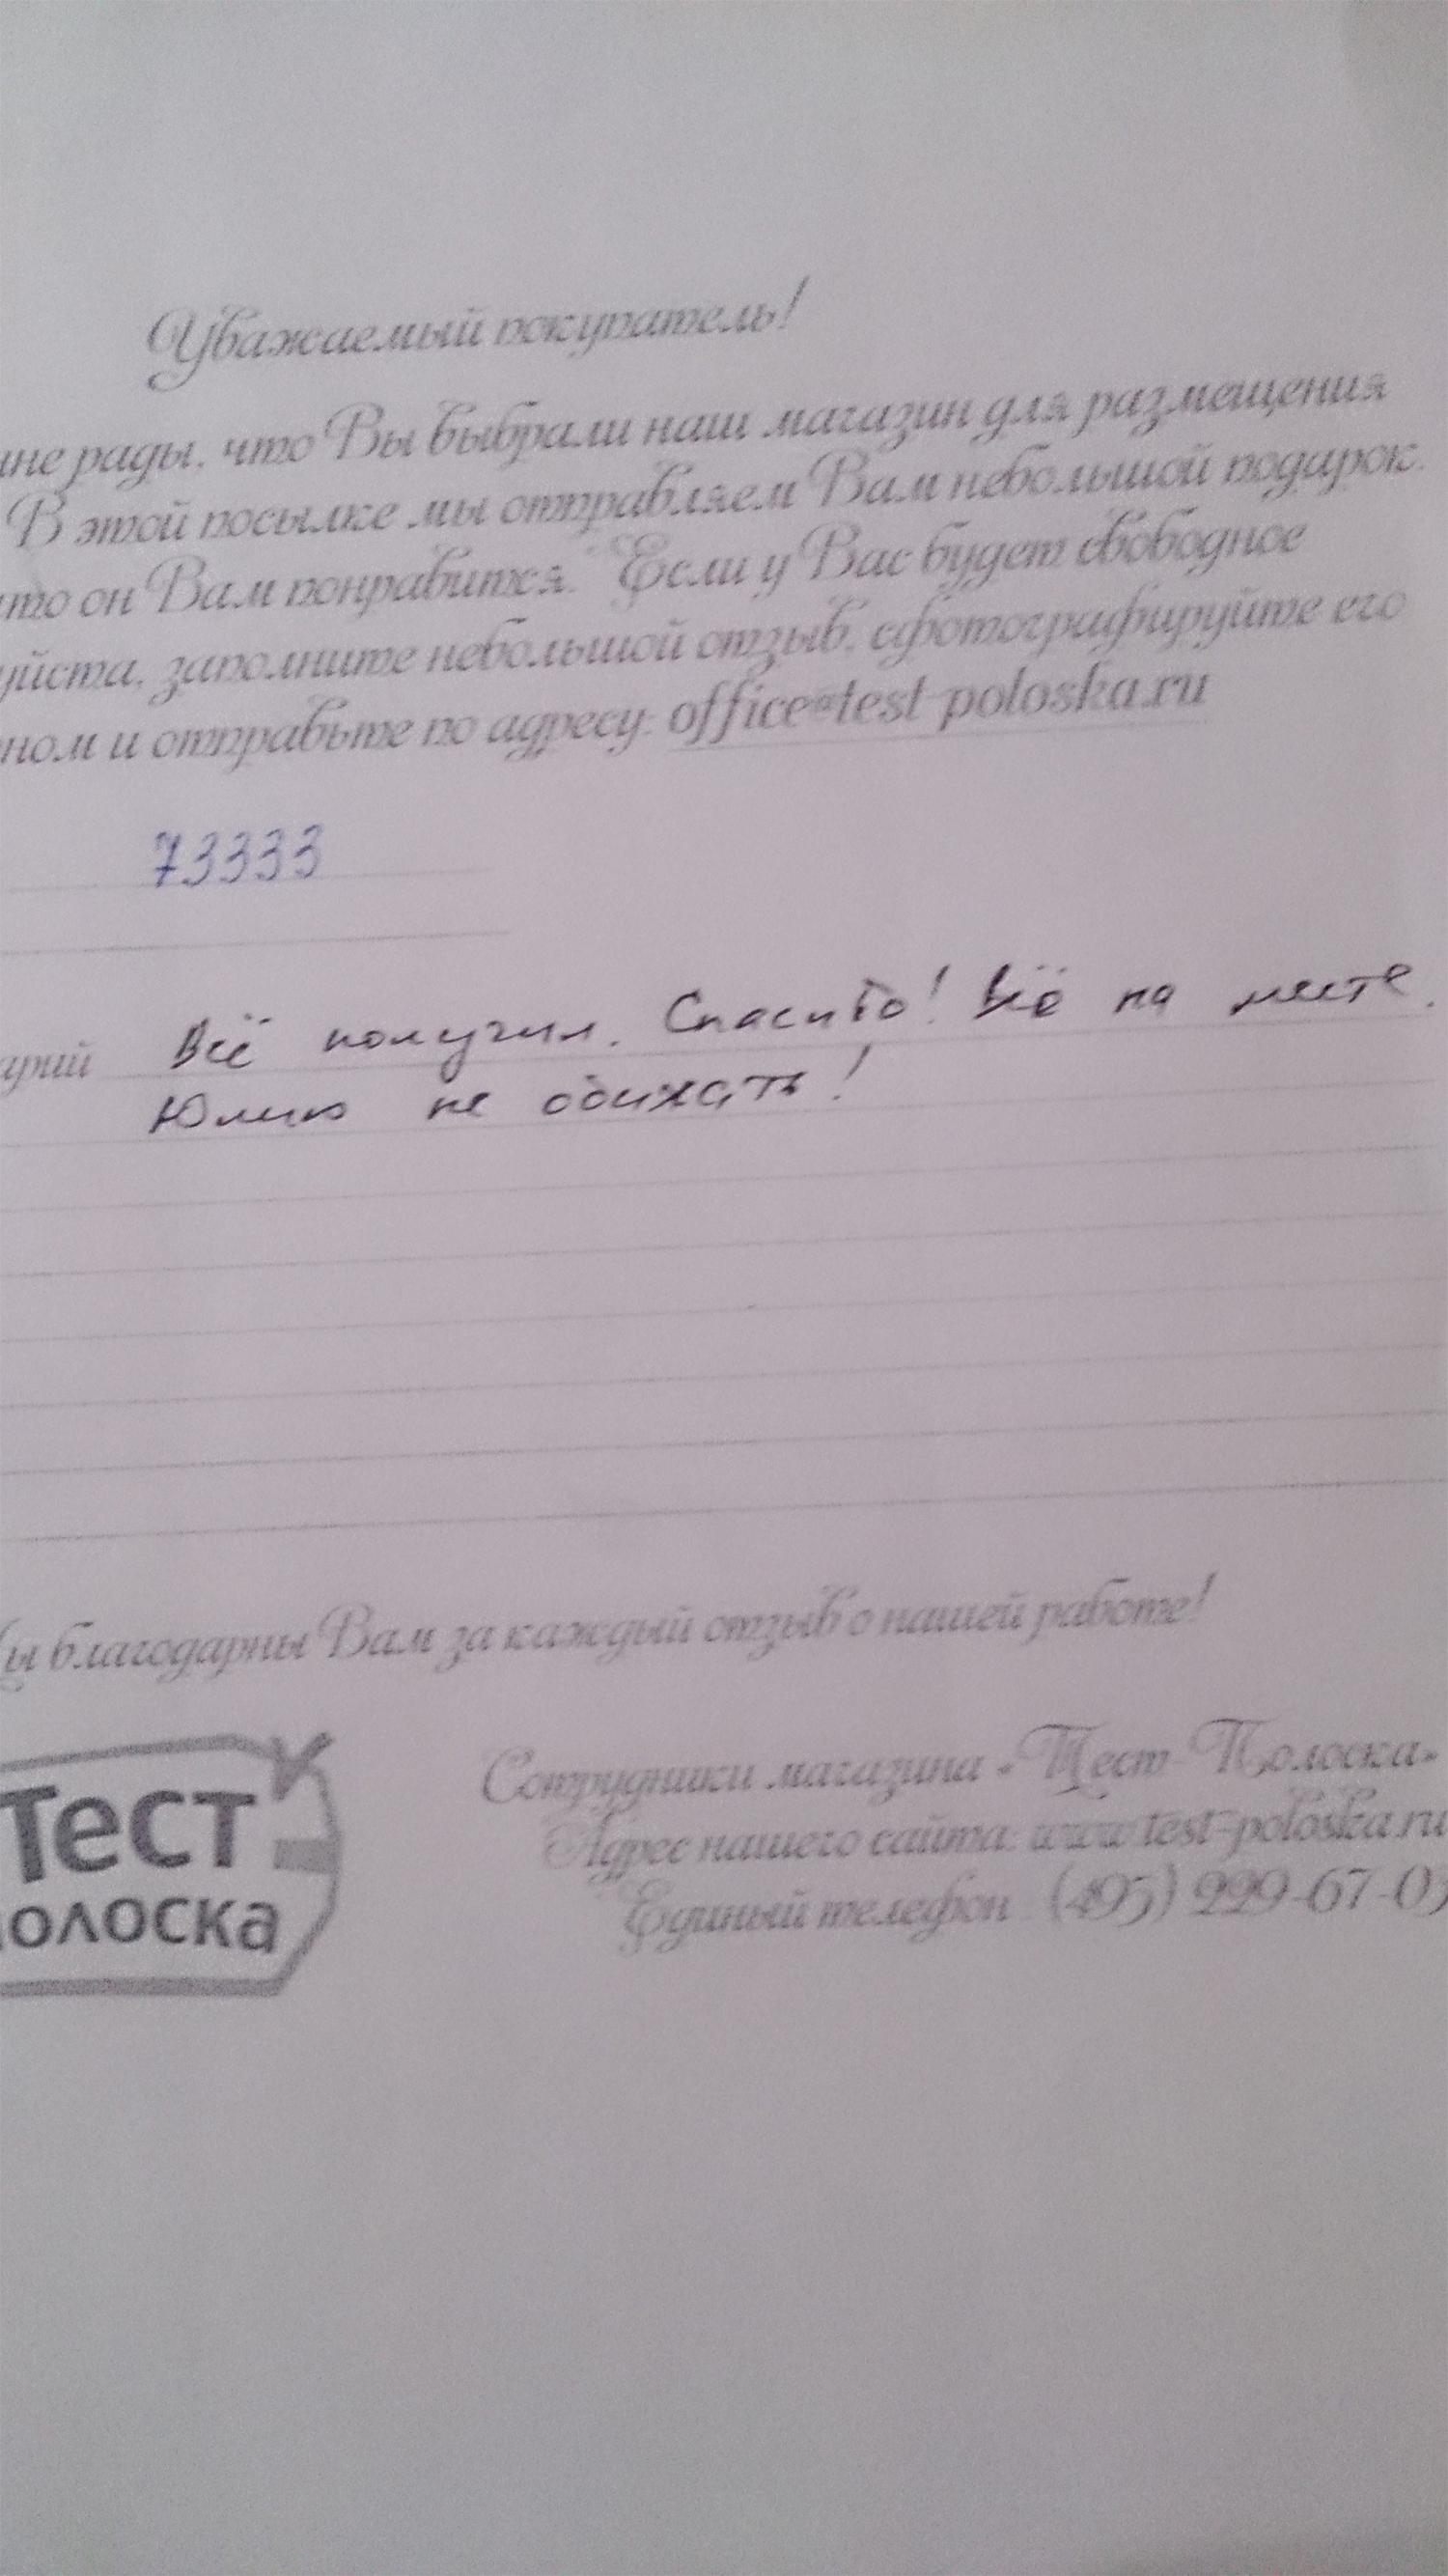 Уважаемый покупатель!
ине рады, что Вы выбрали наш магазин для размещения
В этой посылке мы отправляем Вам небольшой подарок.
что он Вам понравится. Если у Вас будет свободное
уйста, заполните небольшой отзыв, сфотографируйте его
ном и отправьте по адресу: office@test-poloska.ru
73333
арий Всё получил. Спасибо! Всё на месте.
Юлию не обижать!
ы благодарны Вам за каждый отзыв о нашей работе!
Тест
полоска
Сотрудники магазина «Тест-Полоска»
Адрес нашего сайта: www.test-poloska.ru
Единый телефон: (495) 229-67-0